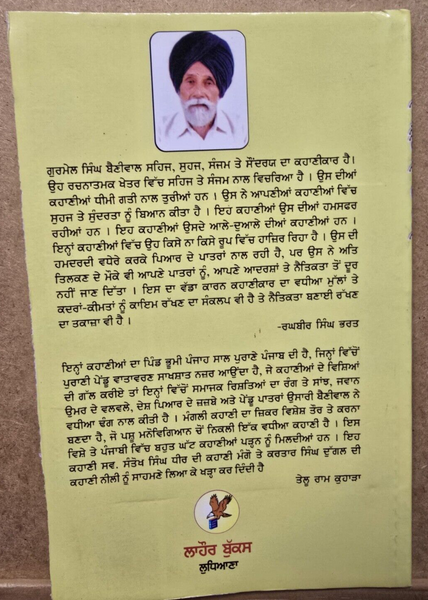 ਗੁਰਮੇਲ ਸਿੰਘ ਬੈਣੀਵਾਲ ਸਹਿਜ, ਸੁਹਜ, ਸੰਜਮ ਤੇ ਸੌਂਦਰਯ ਦਾ ਕਹਾਣੀਕਾਰ ਹੈ।
ਉਹ ਰਚਨਾਤਮਕ ਖੇਤਰ ਵਿੱਚ ਸਹਿਜ ਤੇ ਸੰਜਮ ਨਾਲ ਵਿਚਰਿਆ ਹੈ । ਉਸ ਦੀਆਂ
ਕਹਾਣੀਆਂ ਧੀਮੀ ਗਤੀ ਨਾਲ ਤੁਰੀਆਂ ਹਨ । ਉਸ ਨੇ ਆਪਣੀਆਂ ਕਹਾਣੀਆਂ ਵਿੱਚ
ਸੁਹਜ ਤੇ ਸੁੰਦਰਤਾ ਨੂੰ ਬਿਆਨ ਕੀਤਾ ਹੈ । ਇਹ ਕਹਾਣੀਆਂ ਉਸ ਦੀਆਂ ਹਮਸਫਰ
ਰਹੀਆਂ ਹਨ । ਇਹ ਕਹਾਣੀਆਂ ਉਸਦੇ ਆਲੇ-ਦੁਆਲੇ ਦੀਆਂ ਕਹਾਣੀਆਂ ਹਨ ।
ਇਨ੍ਹਾਂ ਕਹਾਣੀਆਂ ਵਿੱਚ ਉਹ ਕਿਸੇ ਨਾ ਕਿਸੇ ਰੂਪ ਵਿੱਚ ਹਾਜ਼ਿਰ ਰਿਹਾ ਹੈ । ਉਸ ਦੀ
ਹਮਦਰਦੀ ਵਧੇਰੇ ਕਰਕੇ ਪਿਆਰ ਦੇ ਪਾਤਰਾਂ ਨਾਲ ਰਹੀ ਹੈ, ਪਰ ਉਸ ਨੇ ਅਤਿ
ਤਿਲਕਣ ਦੇ ਮੌਕੇ ਵੀ ਆਪਣੇ ਪਾਤਰਾਂ ਨੂੰ, ਆਪਣੇ ਆਦਰਸ਼ਾਂ ਤੇ ਨੈਤਿਕਤਾ ਤੋਂ ਦੂਰ
ਨਹੀਂ ਜਾਣ ਦਿੱਤਾ । ਇਸ ਦਾ ਵੱਡਾ ਕਾਰਨ ਕਹਾਣੀਕਾਰ ਦਾ ਵਧੀਆ ਮੁੱਲਾਂ ਤੇ
ਕਦਰਾਂ-ਕੀਮਤਾਂ ਨੂੰ ਕਾਇਮ ਰੱਖਣ ਦਾ ਸੰਕਲਪ ਵੀ ਹੈ ਤੇ ਨੈਤਿਕਤਾ ਬਣਾਈ ਰੱਖਣ
ਦਾ ਤਕਾਜ਼ਾ ਵੀ ਹੈ ।
-ਰਘਬੀਰ ਸਿੰਘ ਭਰਤ
ਇਨ੍ਹਾਂ ਕਹਾਣੀਆਂ ਦਾ ਪਿੰਡ ਭੂਮੀ ਪੰਜਾਹ ਸਾਲ ਪੁਰਾਣੇ ਪੰਜਾਬ ਦੀ ਹੈ, ਜਿਨ੍ਹਾਂ ਵਿੱਚੋਂ
ਪੁਰਾਣੀ ਪੇਂਡੂ ਵਾਤਾਵਰਣ ਸਾਖਸ਼ਾਤ ਨਜ਼ਰ ਆਉਂਦਾ ਹੈ, ਜੇ ਕਹਾਣੀਆਂ ਦੇ ਵਿਸ਼ਿਆਂ
ਦੀ ਗੱਲ ਕਰੀਏ ਤਾਂ ਇਨ੍ਹਾਂ ਵਿੱਚੋਂ ਸਮਾਜਕ ਰਿਸ਼ਤਿਆਂ ਦਾ ਰੰਗ ਤੇ ਸਾਂਝ, ਜਵਾਨ
ਉਮਰ ਦੇ ਵਲਵਲੇ, ਦੇਸ਼ ਪਿਆਰ ਦੇ ਜਜ਼ਬੇ ਅਤੇ ਪੇਂਡੂ ਪਾਤਰਾਂ ਉਸਾਰੀ ਬੈਣੀਵਾਲ ਨੇ
ਵਧੀਆ ਢੰਗ ਨਾਲ ਕੀਤੀ ਹੈ । ਮੰਗਲੀ ਕਹਾਣੀ ਦਾ ਜ਼ਿਕਰ ਵਿਸ਼ੇਸ਼ ਤੌਰ ਤੇ ਕਰਨਾ
ਬਣਦਾ ਹੈ, ਜੋ ਪਸ਼ੂ ਮਨੋਵਿਗਿਆਨ ਚੋਂ ਨਿਕਲੀ ਇੱਕ ਵਧੀਆ ਕਹਾਣੀ ਹੈ । ਇਸ
ਵਿਸ਼ੇ ਤੇ ਪੰਜਾਬੀ ਵਿੱਚ ਬਹੁਤ ਘੱਟ ਕਹਾਣੀਆਂ ਪੜ੍ਹਨ ਨੂੰ ਮਿਲਦੀਆਂ ਹਨ । ਇਹ
ਕਹਾਣੀ ਸਵ. ਸੰਤੋਖ ਸਿੰਘ ਧੀਰ ਦੀ ਕਹਾਣੀ ਮੰਗੋ ਤੇ ਕਰਤਾਰ ਸਿੰਘ ਦੁੱਗਲ ਦੀ
ਕਹਾਣੀ ਨੀਲੀ ਨੂੰ ਸਾਹਮਣੇ ਲਿਆ ਕੇ ਖੜ੍ਹਾ ਕਰ ਦਿੰਦੀ ਹੈ
ਤੇਲੂ ਰਾਮ ਕੁਹਾੜਾ
ਲਾਹੌਰ ਬੁੱਕਸ
ਲੁਧਿਆਣਾ